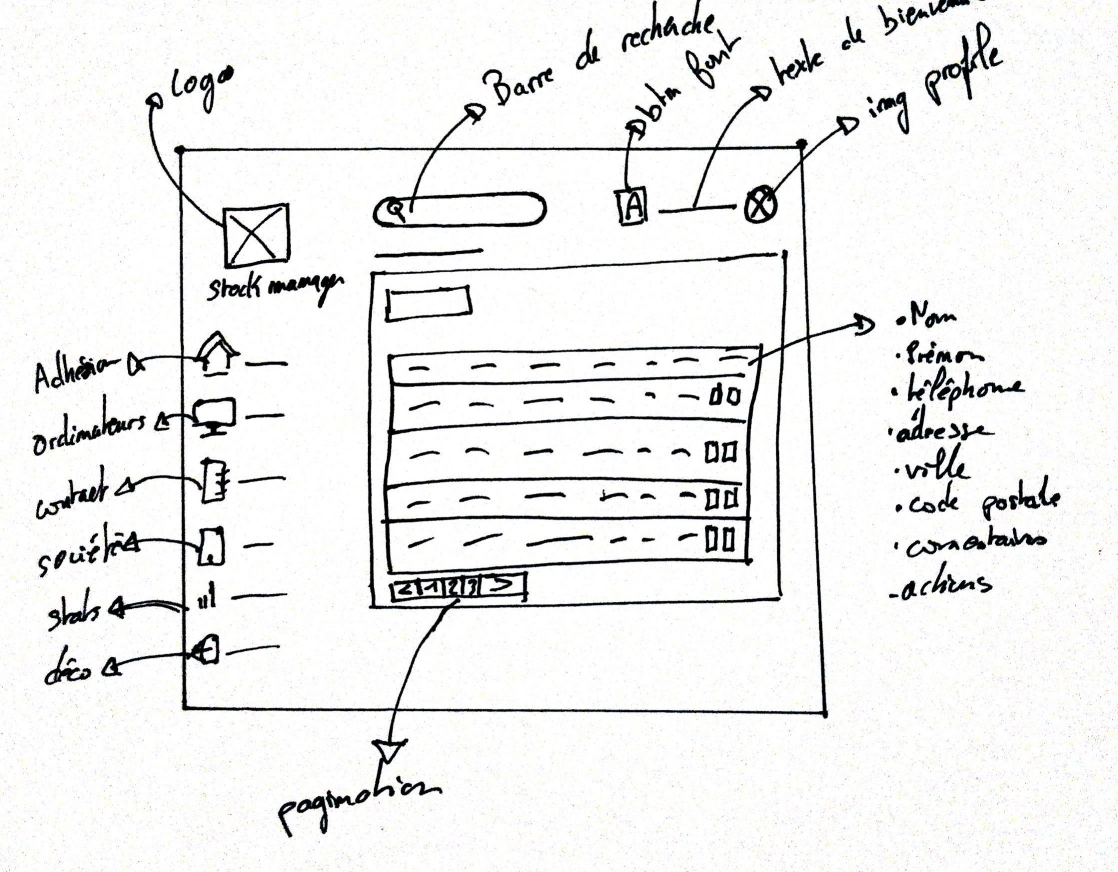 Logo
Barre de recherche
btn font
texte de bienvenue
img profile
A
stock manager
Adhésion
ordinateurs
contact
société
stats
déco
• Nom
• Prénom
• téléphone
• adresse
• ville
• code postale
• comentaires
- actions
< 1 2 3 >
pagination